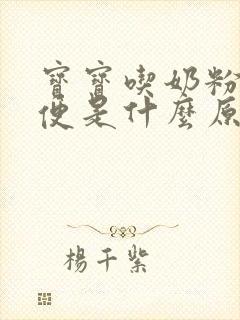 寶寶喫奶粉
便是什麼原
楊千紫